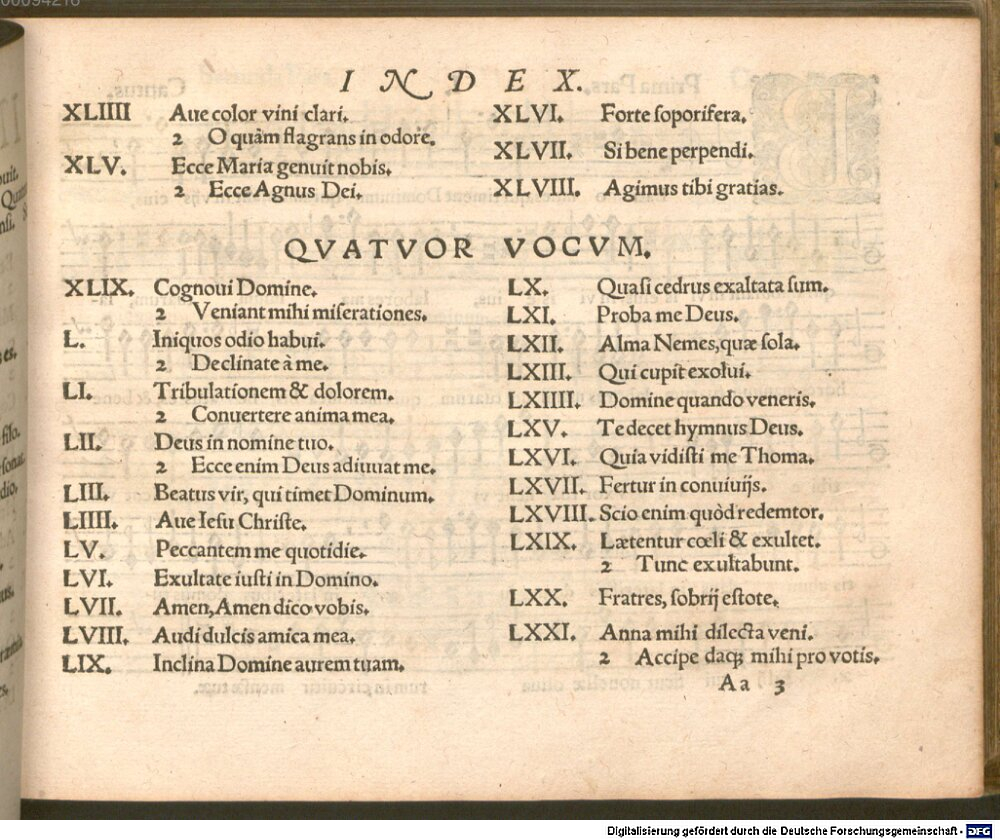 00094216
INDEX.
XLIIII Aue color vini clari.
2 O quàm flagrans in odore.
XLV. Ecce Maria genuit nobis.
2 Ecce Agnus Dei.
XLVI. Forte soporifera.
XLVII. Si bene perpendi.
XLVIII. Agimus tibi gratias.
QVATVOR VOCVM.
XLIX. Cognoui Domine.
2 Veniant mihi miserationes.
L. Iniquos odio habui.
2 Declinate à me.
LI. Tribulationem & dolorem.
2 Conuertere anima mea.
LII. Deus in nomine tuo.
2 Ecce enim Deus adiuuat me.
LIII. Beatus vir, qui timet Dominum.
LIIII. Aue Iesu Christe.
LV. Peccantem me quotidie.
LVI. Exultate iusti in Domino.
LVII. Amen, Amen dico vobis.
LVIII. Audi dulcis amica mea.
LIX. Inclina Domine aurem tuam.
LX. Quasi cedrus exaltata sum.
LXI. Proba me Deus.
LXII. Alma Nemes, quæ sola.
LXIII. Qui cupit exolui.
LXIIII. Domine quando veneris.
LXV. Te decet hymnus Deus.
LXVI. Quia vidisti me Thoma.
LXVII. Fertur in conuiuijs.
LXVIII. Scio enim quòd redemtor.
LXIX. Lætentur cœli & exultet.
2 Tunc exultabunt.
LXX. Fratres, sobrij estote.
LXXI. Anna mihi dilecta veni.
2 Accipe daq; mihi pro votis.
Aa 3
Digitalisierung gefördert durch die Deutsche Forschungsgemeinschaft - DFG